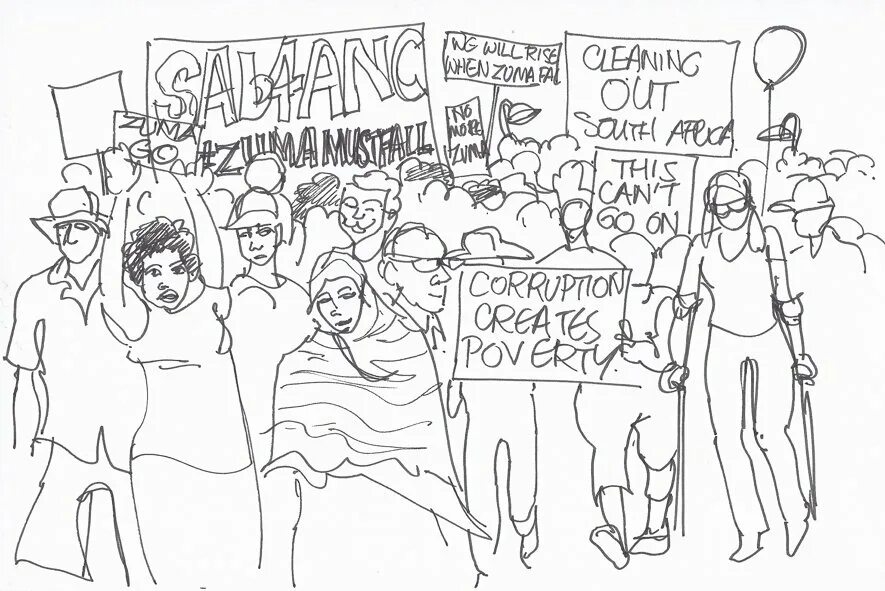 SA B4 ANC
#ZUMAMUSTFALL
ZUMA
GO
WE WILL RISE
WHEN ZUMA FAL
NO
MORE
ZUMA
CLEANING
OUT
SOUTH AFRICA
THIS
CAN'T
GO ON
CORRUPTION
CREATES
POVERTY